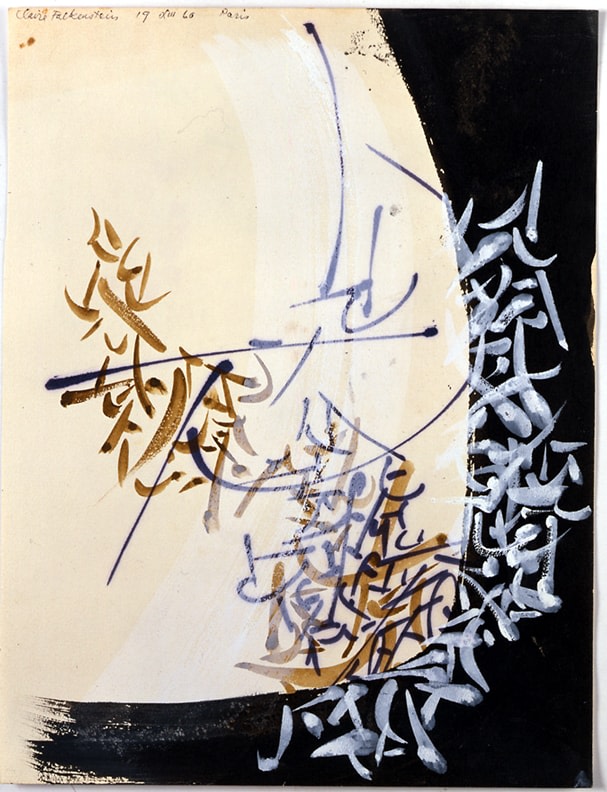 Claire Falkenstein 19 VIII 60 Paris